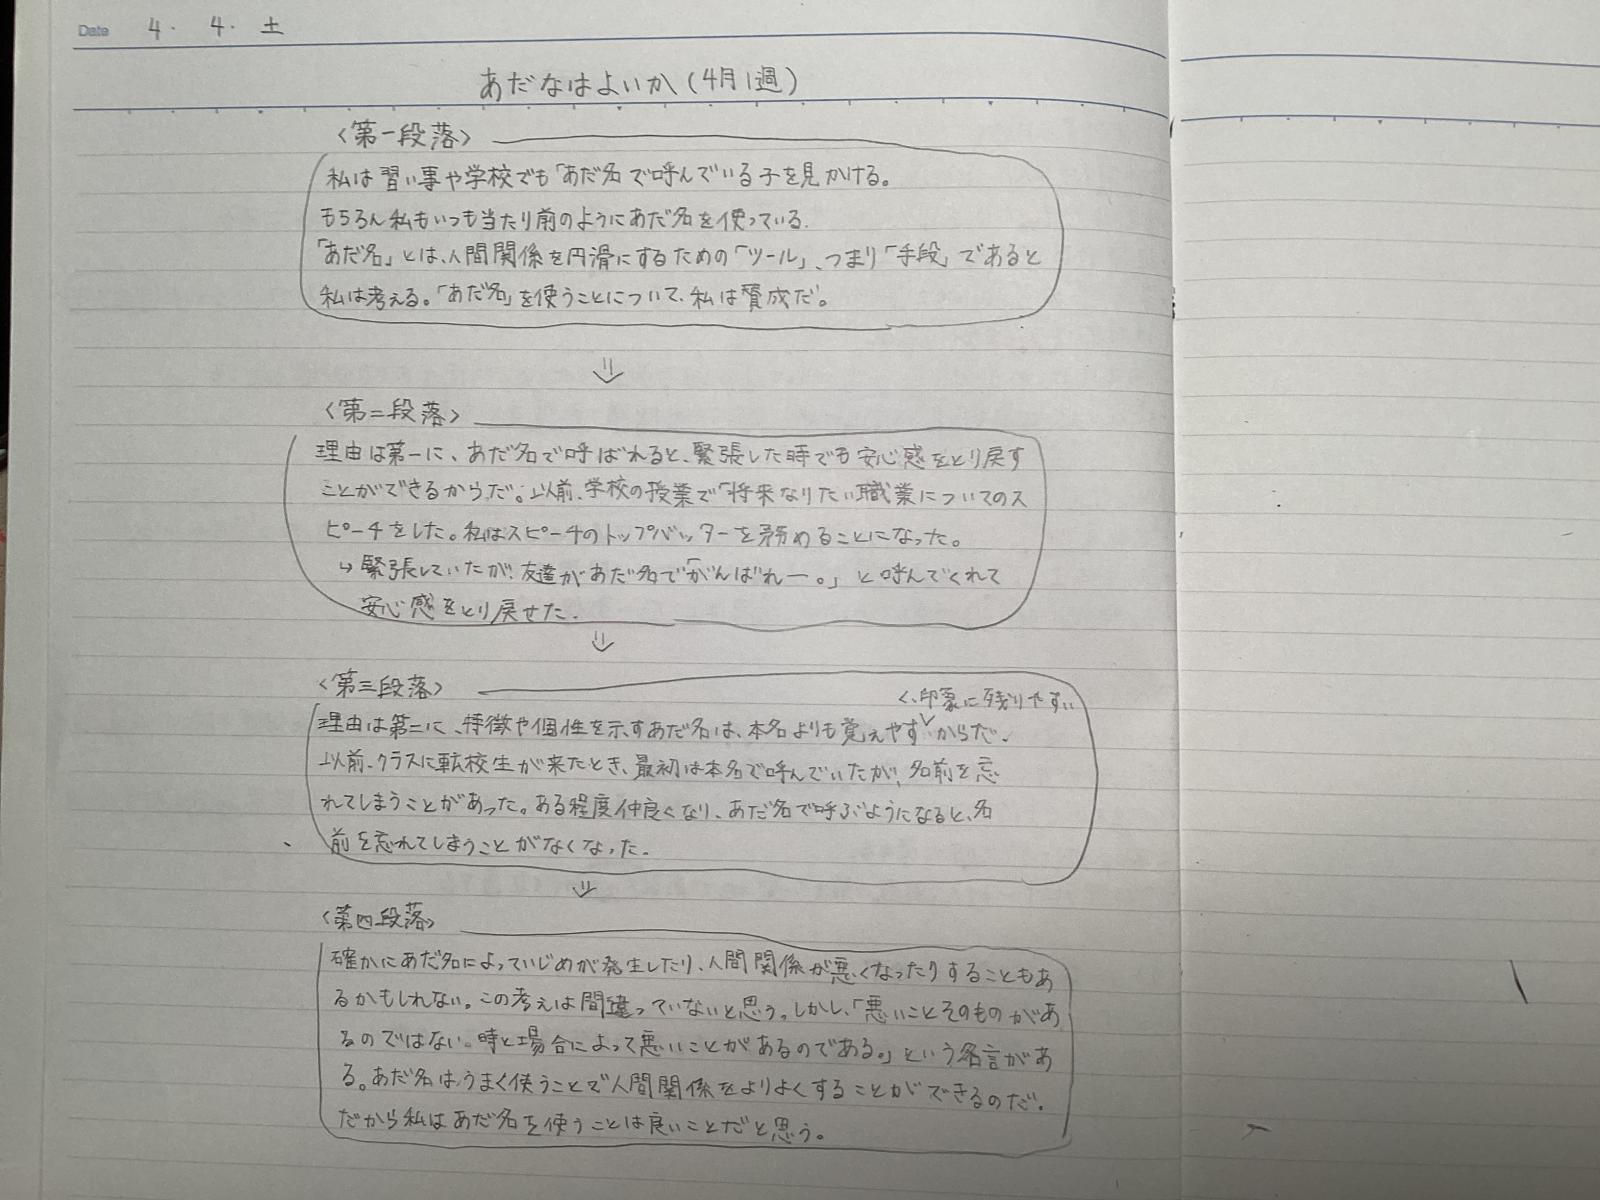 Date 4. 4. 土
あだなはよいか(4月1週)
〈第一段落〉
私は習い事や学校でも「あだ名で呼んでいる子を見かける。
もちろん私もいつも当たり前のようにあだ名を使っている.
「あだ名」とは、人間関係を円滑にするための「ツール」、つまり「手段」であると
私は考える。「あだ名」を使うことについて、私は賛成だ。
⇓
〈第二段落〉
理由は第一に、あだ名で呼ばれると、緊張した時でも安心感をとり戻す
ことができるからだ。以前、学校の授業で「将来なりたい職業についてのス
ピーチをした。私はスピーチのトップバッターを務めることになった。
↳緊張していたが、友達があだ名で「がんばれー。」と呼んでくれて
安心感をとり戻せた.
⇓
〈第三段落〉
く、印象に残りやすい
理由は第二に、特徴や個性を示すあだ名は、本名よりも覚えやす∨からだ、
以前、クラスに転校生が来たとき、最初は本名で呼んでいたが、名前を忘
れてしまうことがあった。ある程度仲良くなり、あだ名で呼ぶようになると、名
前を忘れてしまうことがなくなった.
⇓
〈第四段落〉
確かにあだ名によっていじめが発生したり、人間関係が悪くなったりすることもあ
るかもしれない。この考えは間違っていないと思う。しかし、「悪いことそのものがあ
るのではない。時と場合によって悪いことがあるのである。」という名言があ
る。あだ名は、うまく使うことで人間関係をよりよくすることができるのだ.
だから私はあだ名を使うことは良いことだと思う。